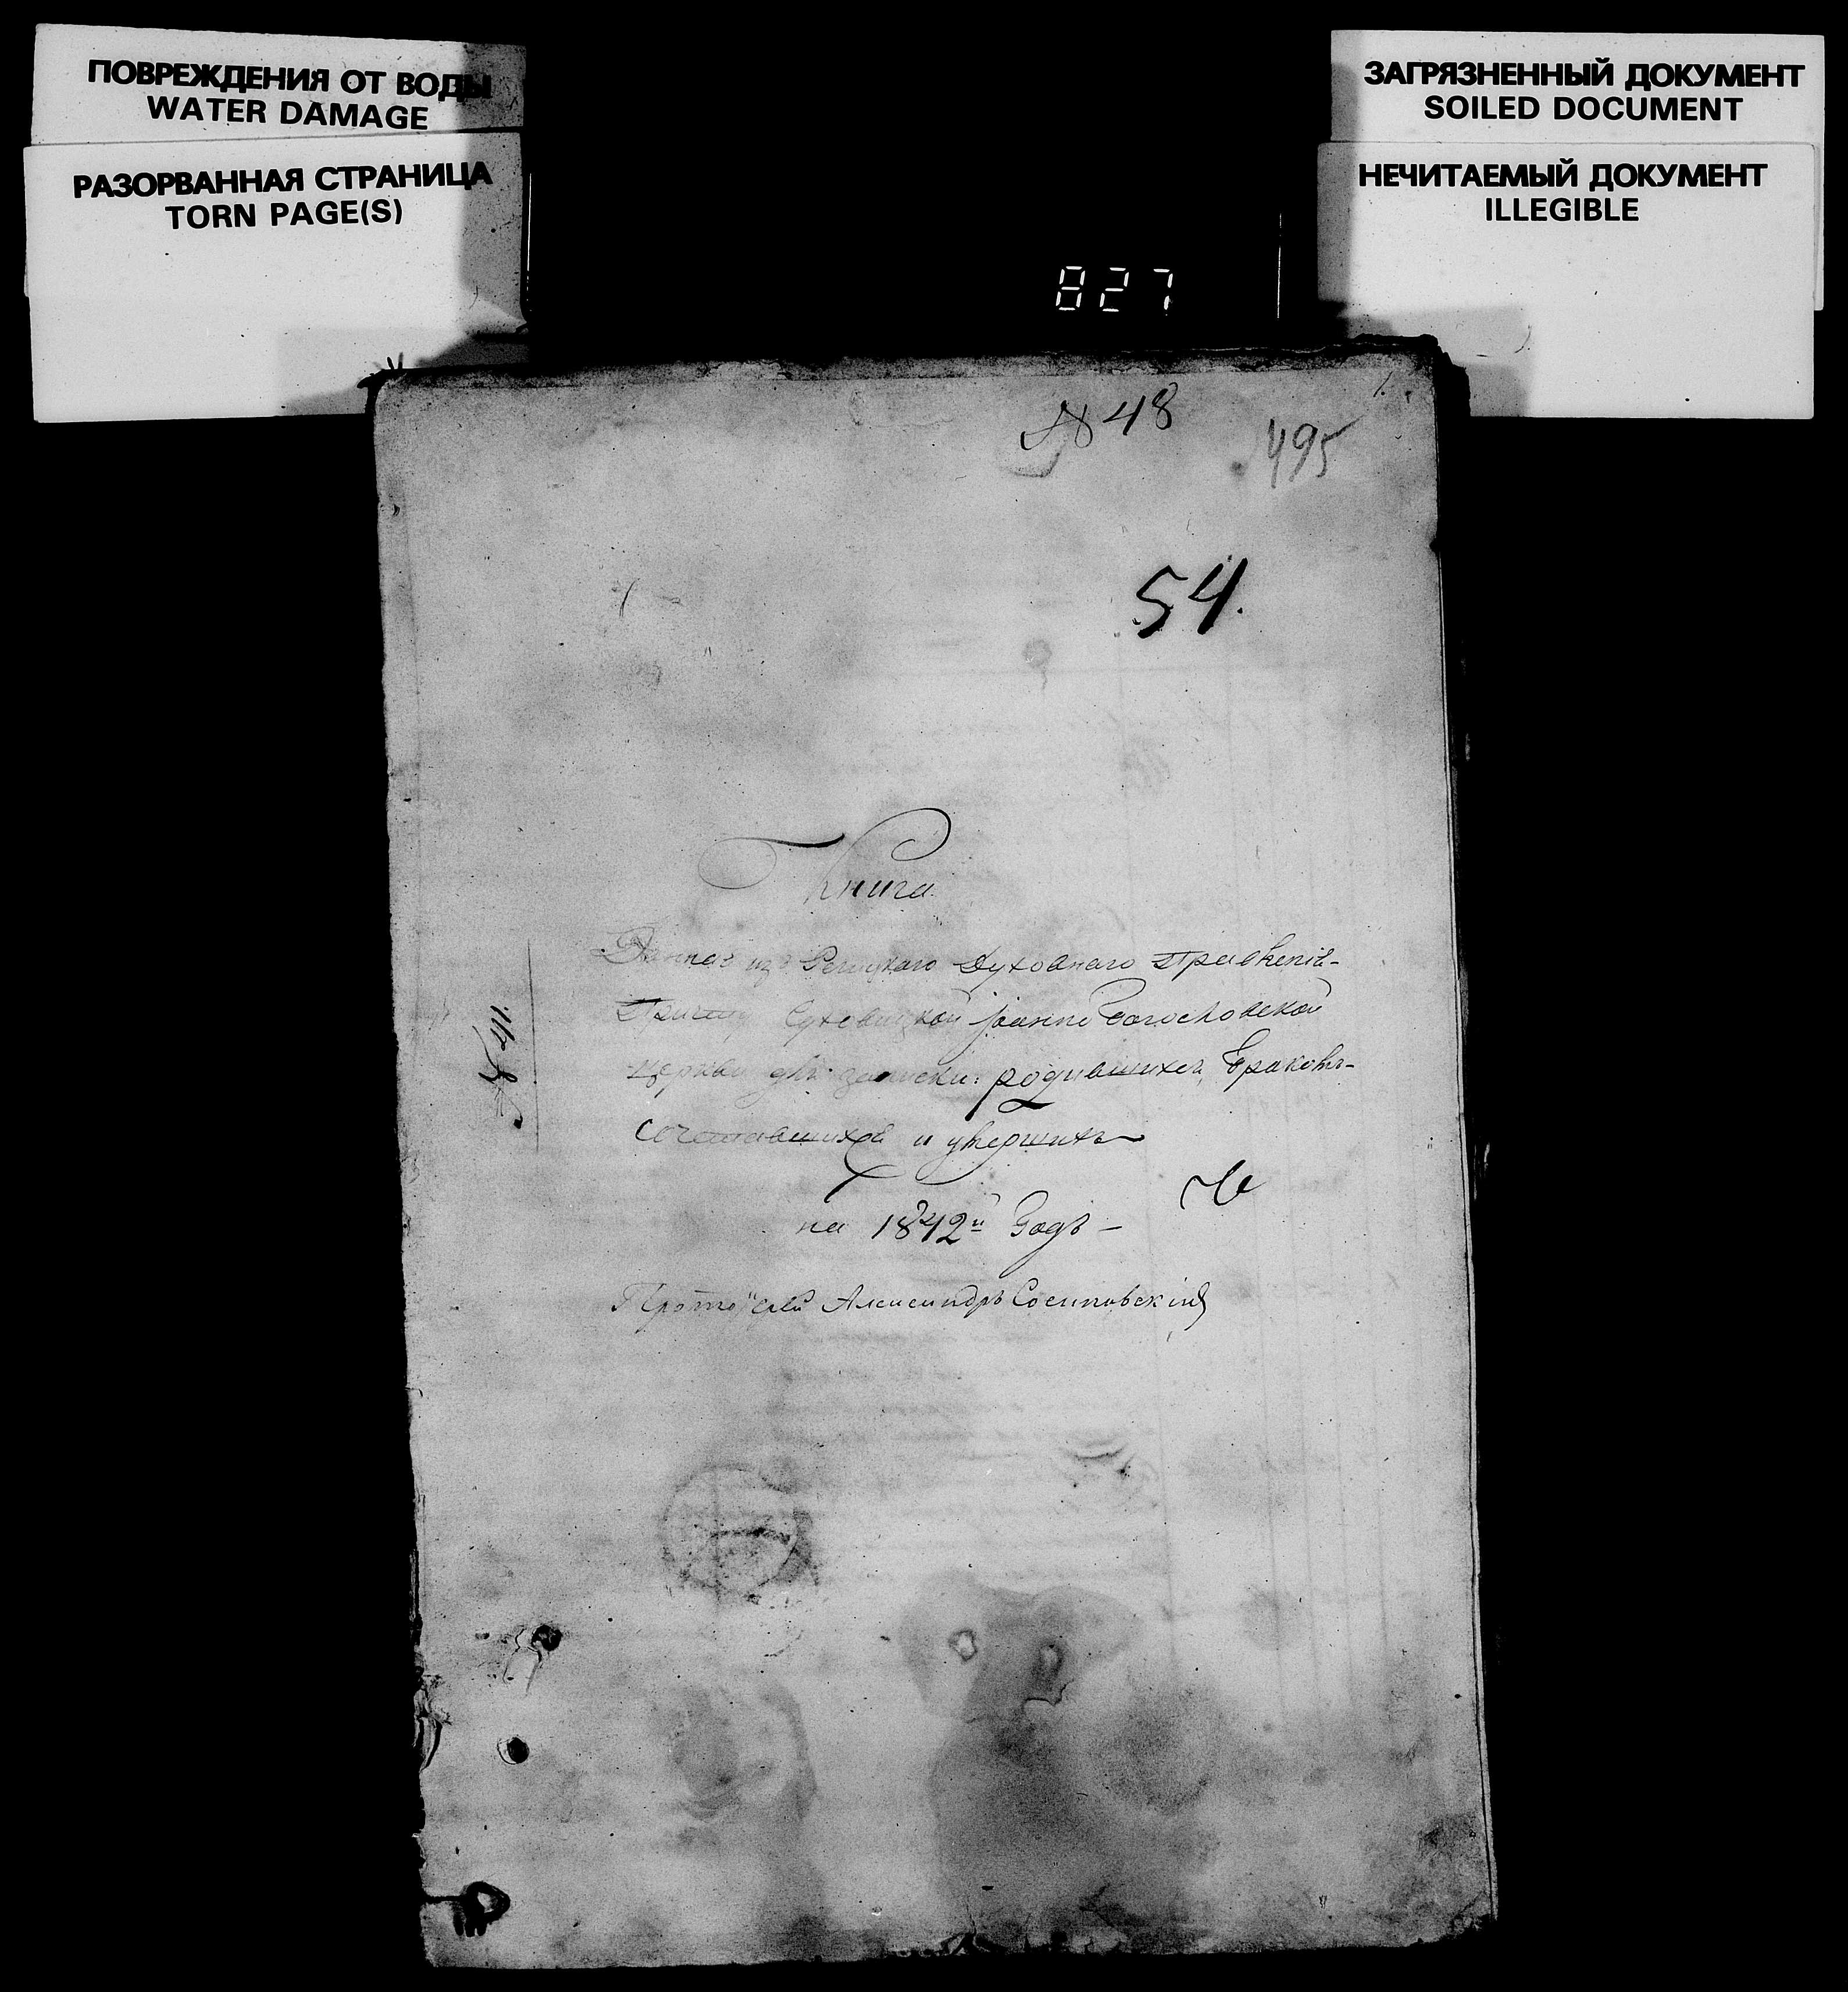 ПОВРЕЖДЕНИЯ ОТ ВОДЫ
WATER DAMAGE
РАЗОРВАННАЯ СТРАНИЦА
TORN PAGE(S)
ЗАГРЯЗНЕННЫЙ ДОКУМЕНТ
SOILED DOCUMENT
НЕЧИТАЕМЫЙ ДОКУМЕНТ
ILLEGIBLE
827
1.
№ 48
495
54.
Книга
Данная изъ Речицкаго Духовнаго Правленія
Причту Іоанно Богословской
Церкви для записки: родившихся, бракомъ
сочетавшихся и умершихъ
на 1842й Годъ —
Протоіерей Александръ